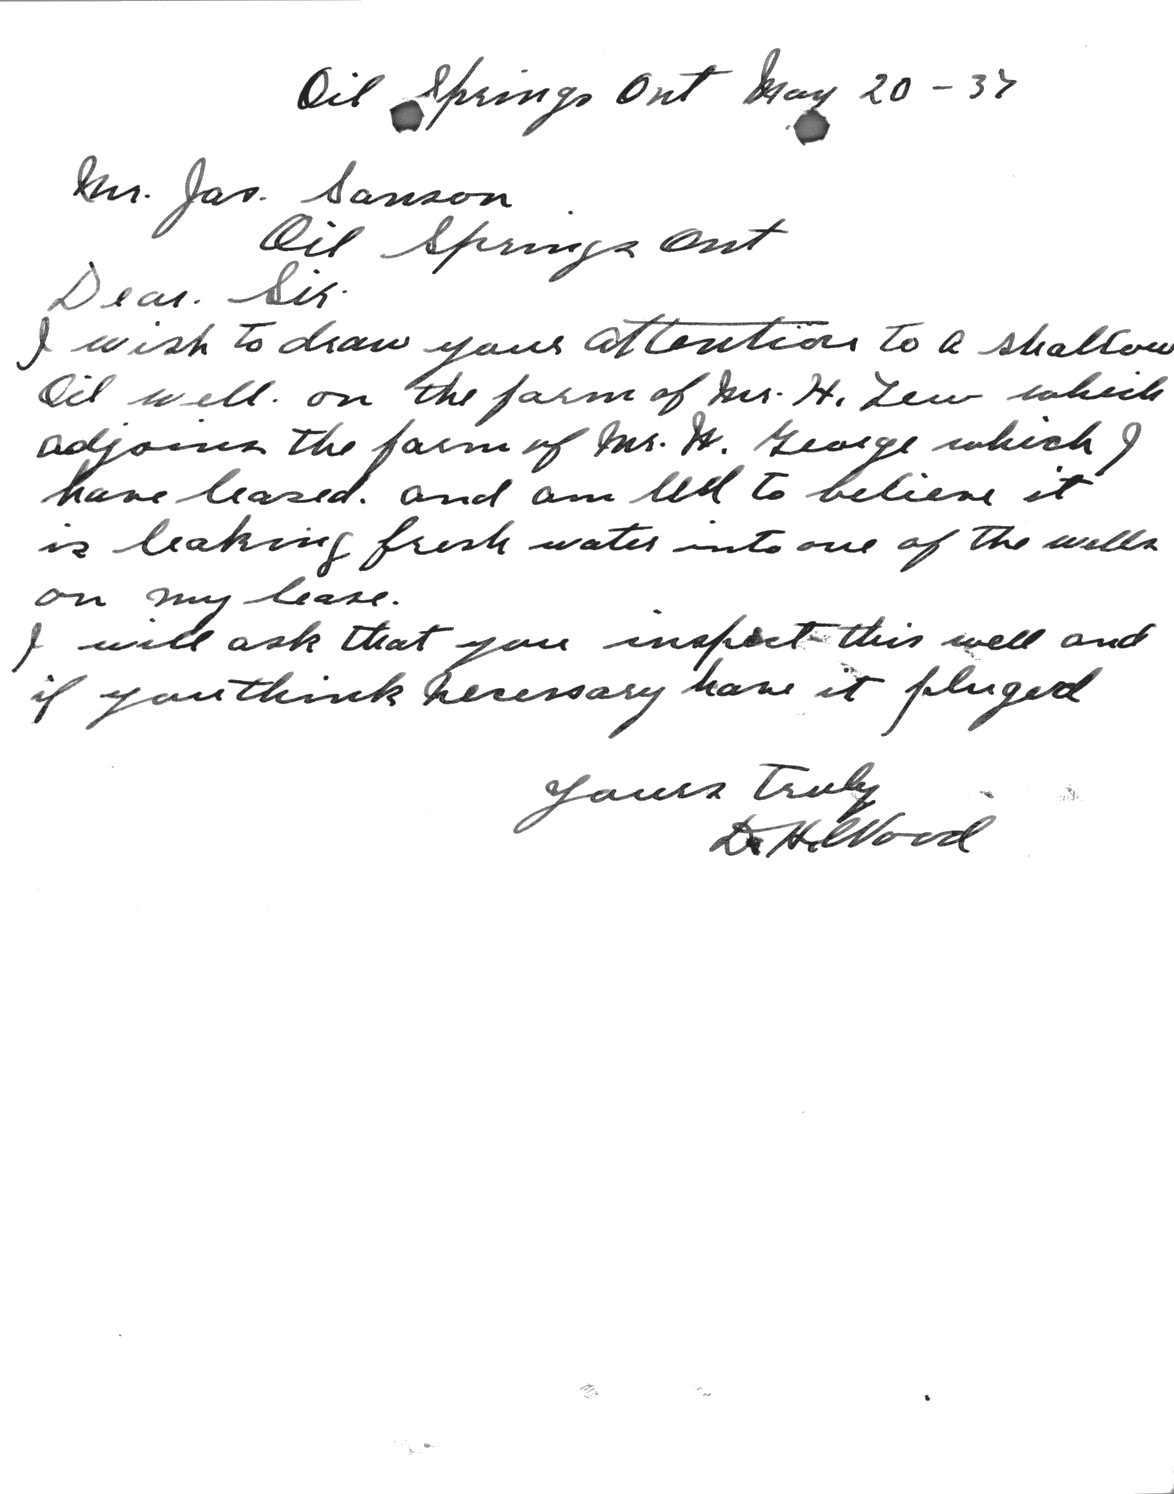 Oil Springs Ont May 20 - 37
Mr. Jas. Sanson
Oil Springs Ont
Dear. Sir.
I wish to draw your attention to a shallow
Oil well. on the farm of Mr. H. Lew which
adjoins the farm of Mr. W. George which I
have leased. and am led to believe it
is leaking fresh water into one of the wells
on my lease.
I will ask that you inspect this well and
if you think necessary have it pluged
Yours Truly
D. H. Wood